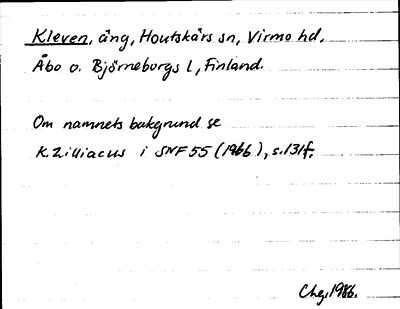 Kleven, äng, Houtskärs sn, Virmo hd,
Åbo o. Björneborgs l, Finland.
Om namnets bakgrund se
K. Zilliacus i SNF 55 (1966), s. 131f.
1986.